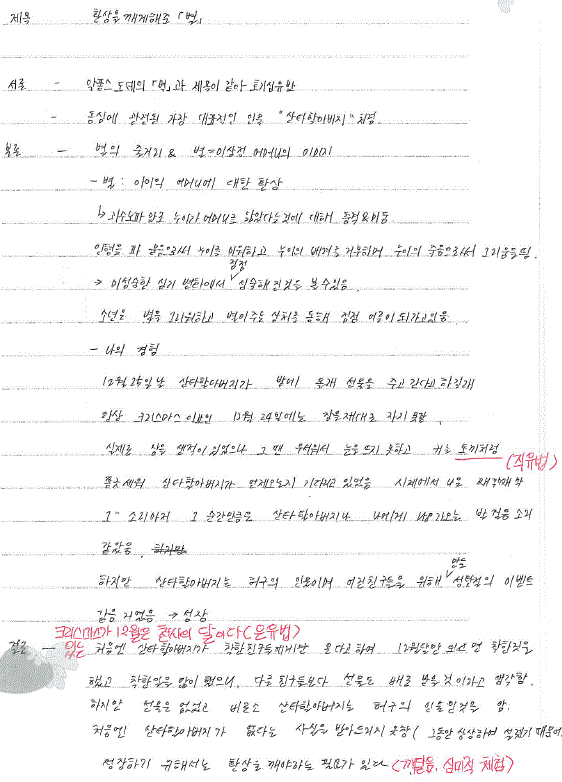 제목 환상을 깨게해준 「별」
서론 - 알퐁스 도데의 「별」과 제목이 같아 호기심유발
- 동심에 관련된 가장 대표적인 인물 "산타할아버지" 처럼
본론 - 별의 줄거리 & 별=이상적 어머니의 이미지
- 별 : 아이의 어머니에 대한 환상
누이가 어머니를 닮았다는것에 대해 충격&미움
인형을 파 묻음으로써 누이를 미워하고 누이의 배려를 거부하며 누이의 죽음으로써 그리움을 느낌.
→ 미성숙한 심리 변화에서 점점 성숙해진것을 볼수있음
소년은 별을 그리워하고 별이주는 상처를 통해 점점 어른이 되가고있음
- 나의 경험
12월 25일 날 산타할아버지가 밤에 몰래 선물을 주고 간다고 하길래
항상 크리스마스 이브인 12월 24일에는 잠을 제대로 자지 못함.
실제로 잠을 깬적이 있었으나 그 땐 무서워서 눈을 뜨지 못하고 귀는 토끼처럼 (직유법)
쫑긋 세워 산타할아버지가 언제오는지 기다리고 있었음 시계에서 나온 째깍째깍
그 소리마저 그 순간만큼은 산타할아버지가 나에게 다가오는 발 걸음 소리
같았음.
하지만 산타할아버지는 허구의 인물이며 어린친구들을 위해 만든 성탄절의 이벤트
같음 커졌음 → 성장
크리스마스가 있는 12월은 천사의 달이다 (은유법)
결론 - 처음엔 산타할아버지가 착한친구들에게만 온다고하여 12월달만 되면 착한일을
했고 착한일을 많이 했으니, 다른 친구들보다 선물도 배로 받을것이라고 생각함.
하지만 선물은 없었고 비로소 산타할아버지는 허구의 인물인것을 앎.
처음엔 산타할아버지가 없다는 사실을 받아드리지 못함 (그동안 상상하며 설렜기 때문에
성장하기 위해서는 환상을 깨야하는 필요가 있다 (깨달음, 심미적 체험)